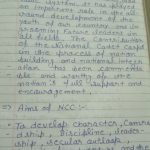 basic system. It has played
an important role in the all
round development of the
youth of our country, and in
grooming future leaders in
all field. The contribution
of the National Cadet Corps
in the process of nation
building and national integr
ation has been commenda
ble and worthy of the
nation's full support and
encouragement.
⇒ Aims of NCC :-
→ To develop character, Comra
dship, discipline, leader
ship, secular outlook,